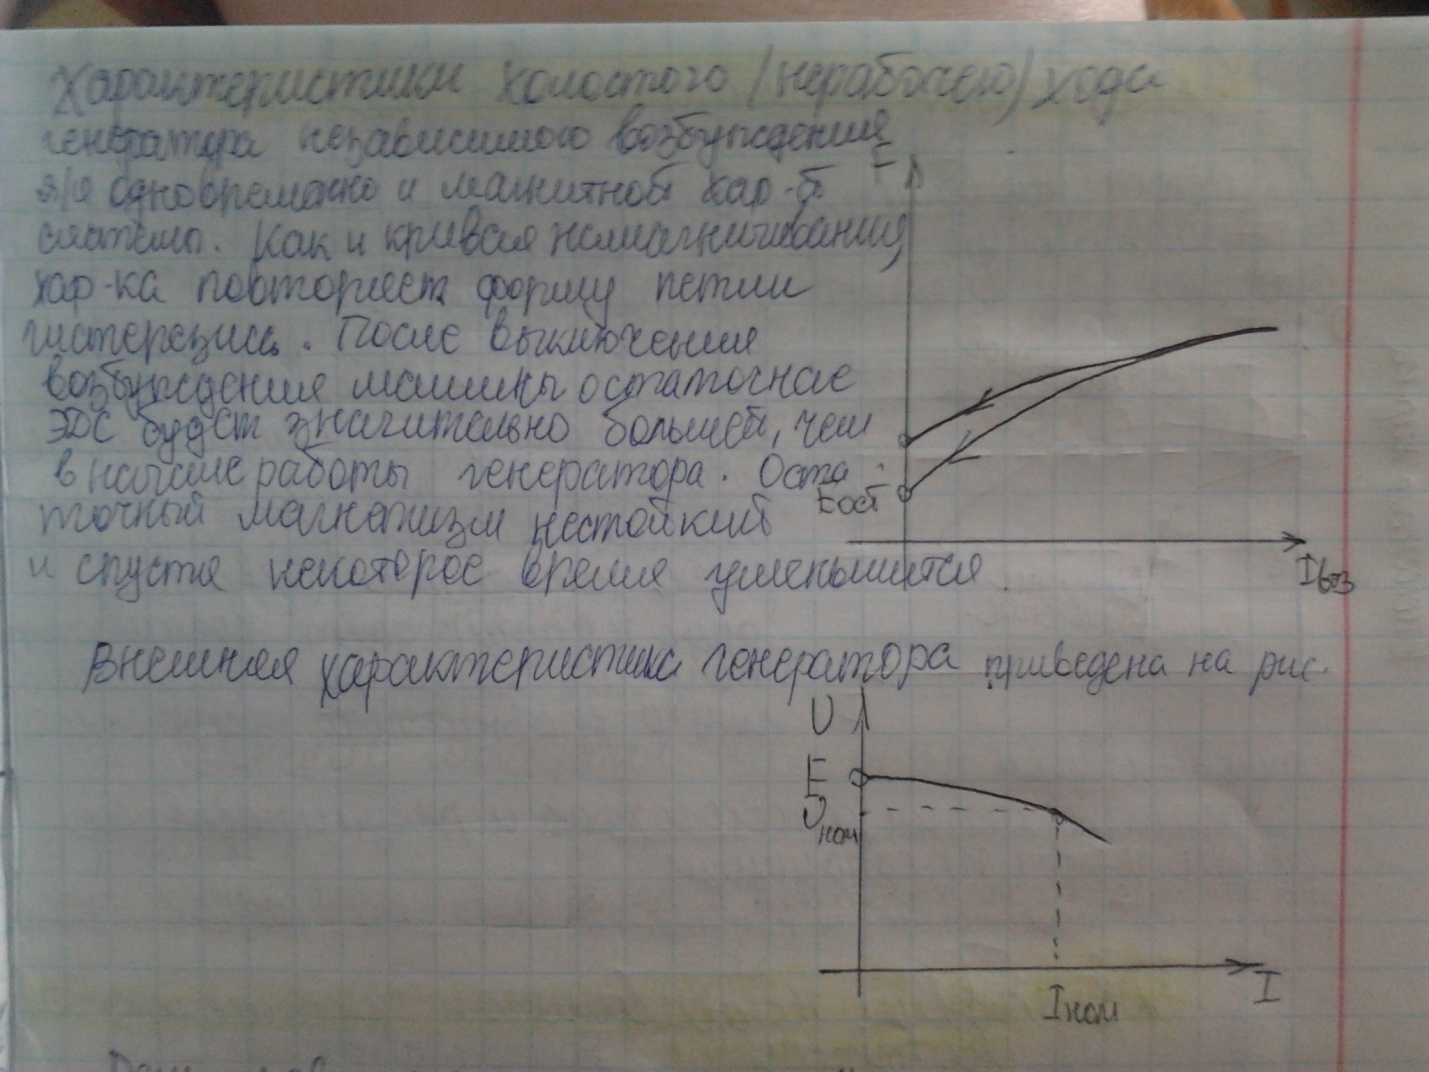 Характеристики холостого (нерабочего) хода
генератора независимого возбуждения
я/я одновременно и магнитной хар-й
Как и кривая намагничивания,
хар-ка повторяет форму петли
гистерезиса. После выключения
возбуждения машины остаточнае
ЭДС будет значительно большей, чем
в начале работы генератора. Оста
точный магнетизм нестойкий
и спустя некоторое время уменьшится
E
Eост
Iвоз
Внешняя характеристика генератора приведена на рис.
U
E
Uном
Iном
I